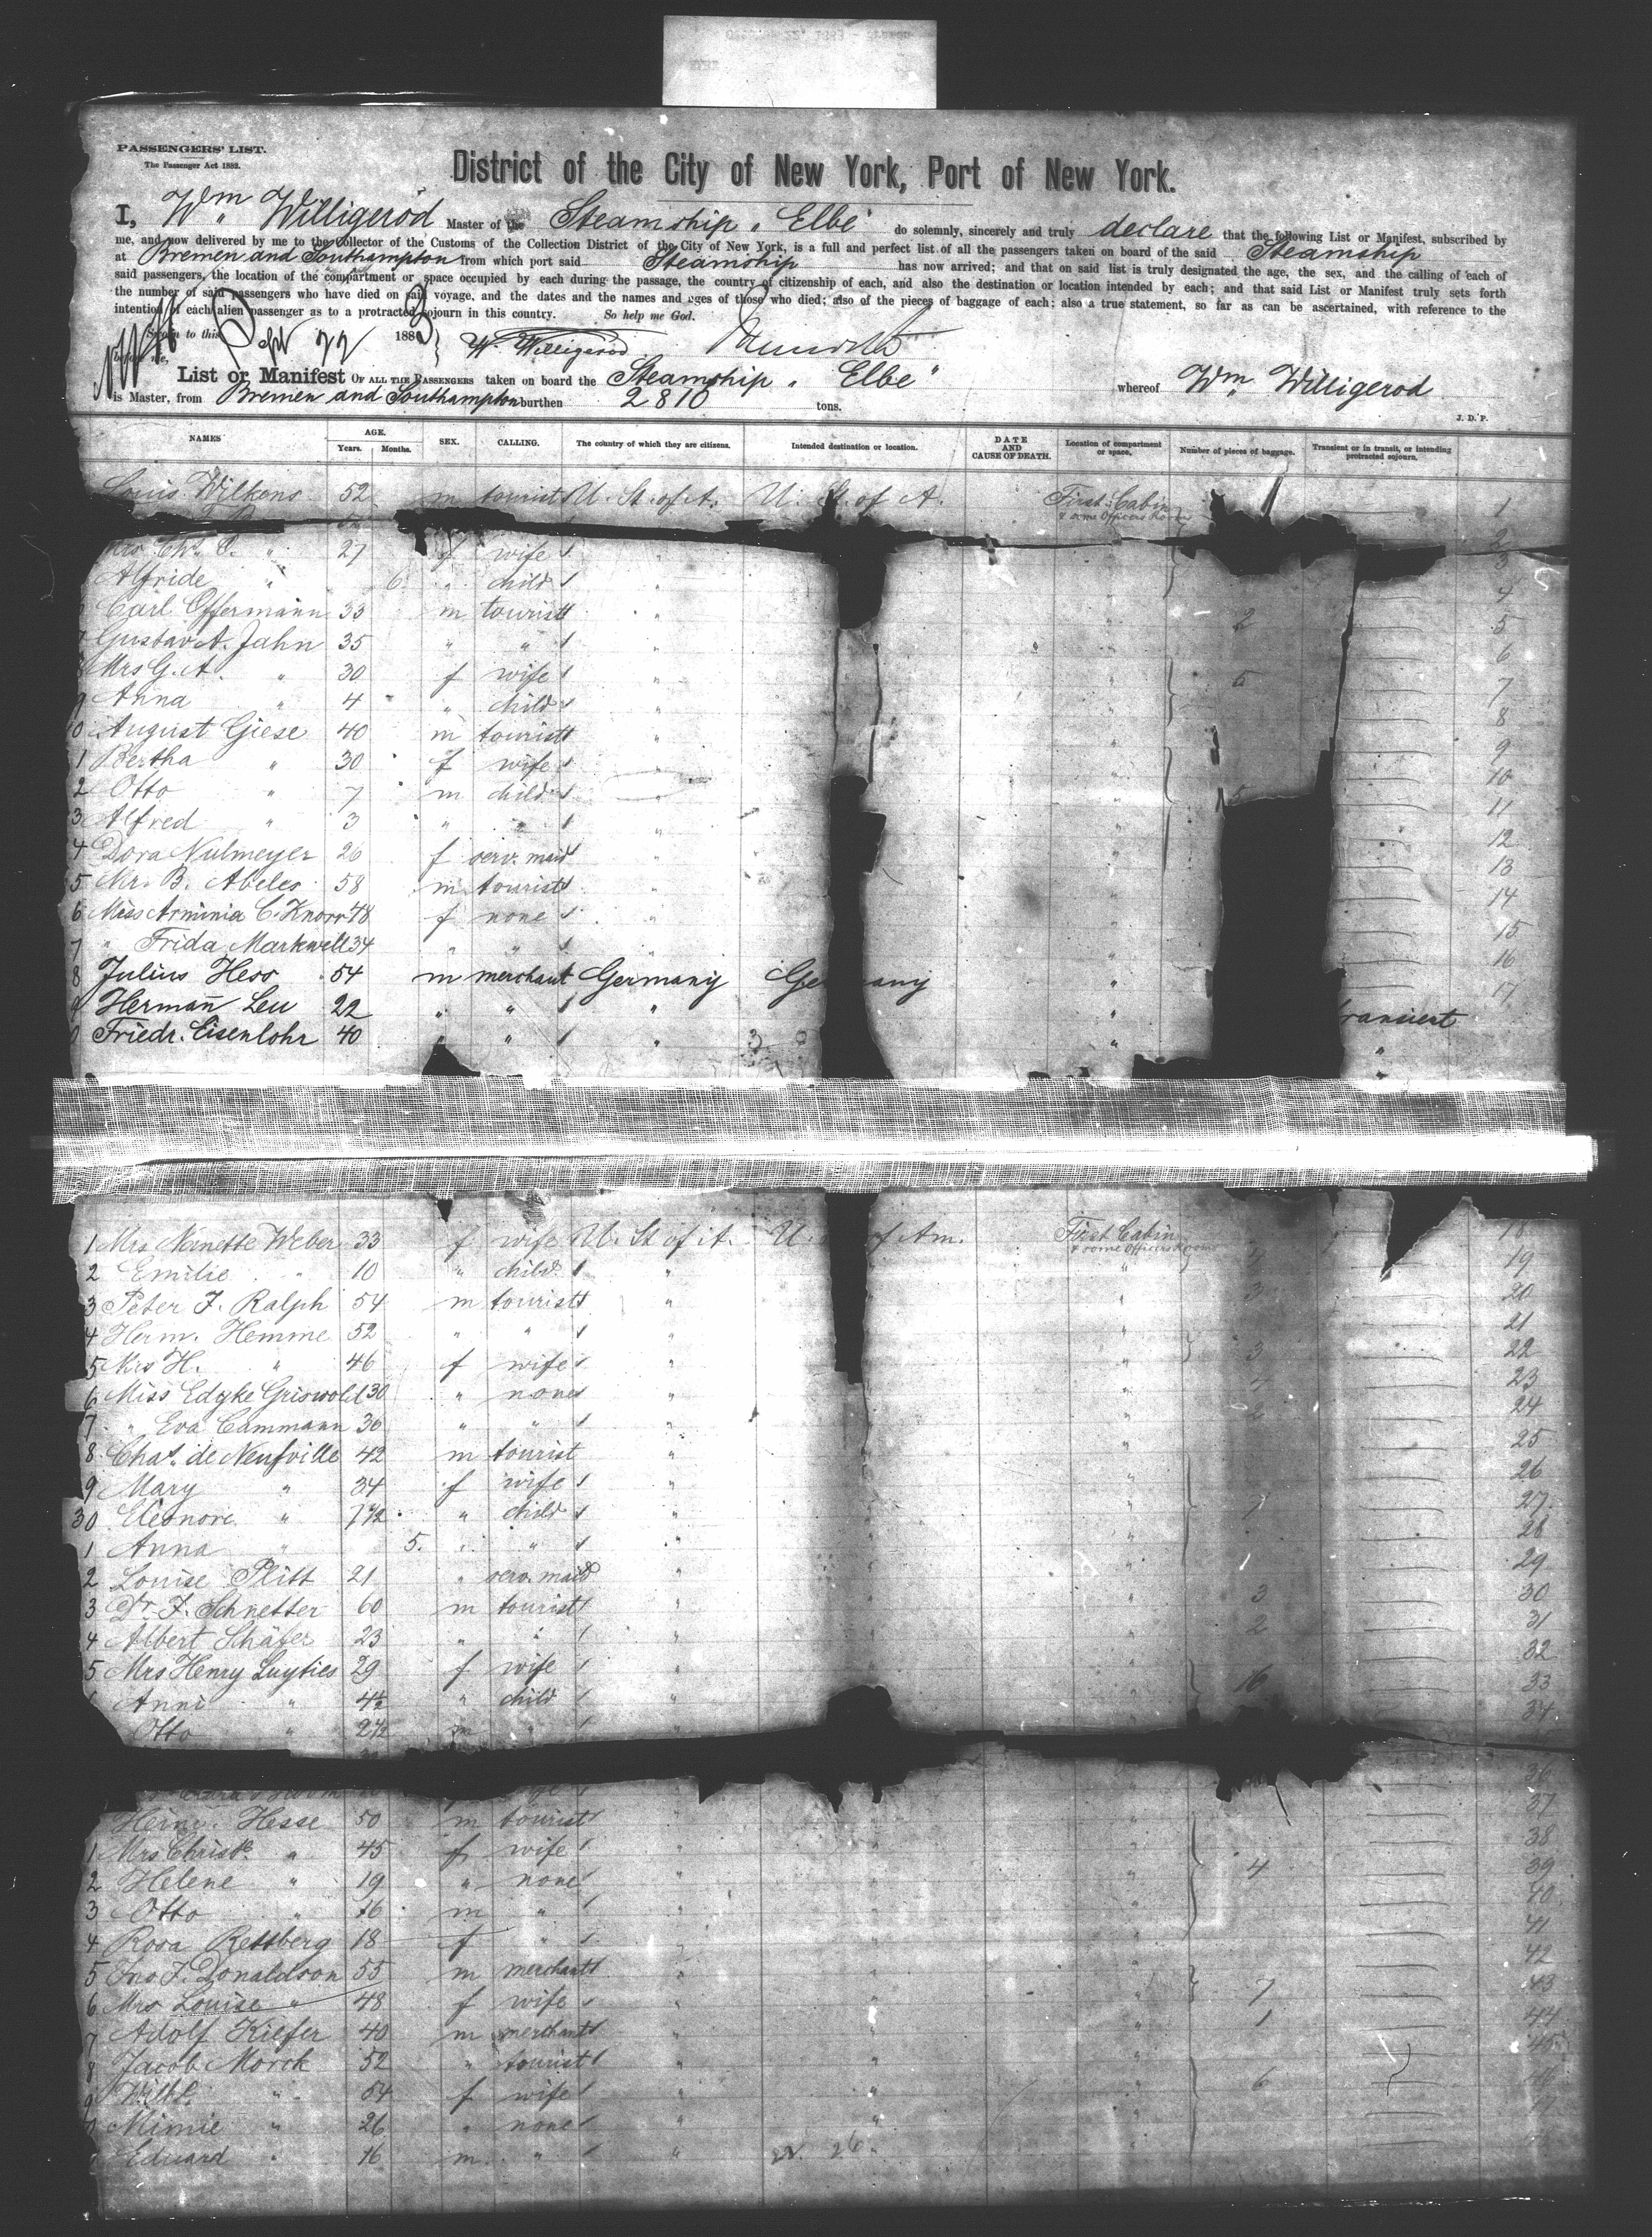 PASSENGERS' LIST.
The Passenger Act 1882.
District of the City of New York, Port of New York.
I, Wm Willigerod Master of the Steamship "Elbe" do solemnly, sincerely and truly declare that the following List or Manifest, subscribed by
me, and now delivered by me to the Collector of the Customs of the Collection District of the City of New York, is a full and perfect list of all the passengers taken on board of the said Steamship
at Bremen and Southampton from which port said Steamship has now arrived; and that on said list is truly designated the age, the sex, and the calling of each of
said passengers, the location of the compartment or space occupied by each during the passage, the country of citizenship of each, and also the destination or location intended by each; and that said List or Manifest truly sets forth
the number of said passengers who have died on said voyage, and the dates and the names and ages of those who died; also of the pieces of baggage of each; also a true statement, so far as can be ascertained, with reference to the
intention of each alien passenger as to a protracted sojourn in this country. So help me God.
Sworn to this 22 1883
before me, W. Willigerod
List or Manifest OF ALL THE PASSENGERS taken on board the Steamship "Elbe" whereof Wm Willigerod
is Master, from Bremen and Southampton burthen 2810 tons.
J. D. P.
NAMES AGE. Years. Months. SEX. CALLING. The country of which they are citizens. Intended destination or location. DATE AND CAUSE OF DEATH. Location of compartment or space. Number of pieces of baggage. Transient or in transit, or intending protracted sojourn.
Louis Wilkens 52 m tourist U. St. of A. U. St. of A. First Cabin & some Officers Rooms 1
2
Mrs Chs. " 27 f wife " " 3
Alfride " 6 " child " " 4
Carl Offermann 33 m tourist " " 2 5
Gustav A. Jahn 35 " " " " 6
8 Mrs G. A. " 30 f wife " " 5 7
9 Anna " 4 " child " " 8
10 August Giese 40 m tourist " " 9
1 Bertha " 30 f wife " " 10
2 Otto " 7 m child " " 5 11
3 Alfred " 3 " " " " 12
4 Dora Nulmeyer 26 f serv. maid " " 13
5 Mr. B. Abeles 58 m tourist " " 14
6 Miss Arminia C. Knorr 48 f none " " 15
7 " Frida Markwell 34 " " " " 16
8 Julius Hess 54 m merchant Germany Germany " 17
9 Hermann Leu 22 " " " " transient
0 Friedr. Eisenlohr 40 " " " " "
1 Mrs Nanette Weber 33 f wife U. St of A. U. of Am. First Cabin & some Officers Rooms 4 18
2 Emilie " 10 " child " " 19
3 Peter F. Ralph 54 m tourist " " 3 20
4 Herm. Hemme 52 " " " " 21
5 Mrs H. " 46 f wife " " 3 22
6 Miss Edyke Griswold 30 " none " " 4 23
7 " Eva Cammann 36 " " " " 2 24
8 Chas. de Neufville 42 m tourist " " 25
9 Mary " 34 f wife " " 26
30 Eleonore " 7 1/2 " child " " 7 27
1 Anna " 5. " " " " 28
2 Louise Plitt 21 " serv. maid " " 29
3 Dr. F. Schnetter 60 m tourist " " 3 30
4 Albert Schäfer 23 " " " " 2 31
5 Mrs Henry Luyties 29 f wife " " 16 32
6 Anni " 4 1/2 " child " " 33
Otto " 2 1/2 m " " 34
36
Herm. Hesse 50 m tourist " " 37
1 Mrs Christe. " 45 f wife " " 38
2 Helene " 19 " none " " 4 39
3 Otto " 16 m " " " 40
4 Rosa Rettberg 18 f " " " 41
5 Jno F. Donaldson 55 m merchant " " 42
6 Mrs Louise " 48 f wife " " 7 43
7 Adolf Kiefer 40 m merchant " " 1 44
8 Jacob Morck 52 " tourist " " 45
9 Wilhe. " 54 f wife " " 6 46
0 Mimie " 26 " none " " 47
Eduard " 16 m " " "